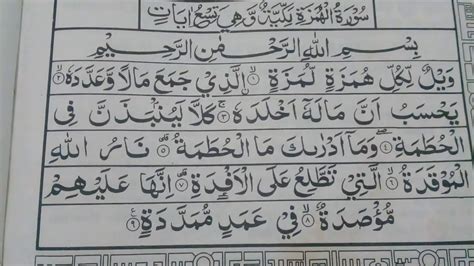 سُوْرَةُ الْهُمَزَةِ مَكِّيَّةٌ وَّهِيَ تِسْعُ اٰيَاتٍ
بِسْمِ اللهِ الرَّحْمٰنِ الرَّحِيْمِ
وَيْلٌ لِّكُلِّ هُمَزَةٍ لُّمَزَةٍ ۝١ الَّذِيْ جَمَعَ مَالًا وَّعَدَّدَهٗ ۝٢
يَحْسَبُ اَنَّ مَالَهٗٓ اَخْلَدَهٗ ۝٣ كَلَّا لَيُنْۢبَذَنَّ فِى
الْحُطَمَةِ ۝٤ وَمَآ اَدْرٰىكَ مَا الْحُطَمَةُ ۝٥ نَارُ اللهِ
الْمُوْقَدَةُ ۝٦ الَّتِيْ تَطَّلِعُ عَلَى الْاَفْـِٕدَةِ ۝٧ اِنَّهَا عَلَيْهِمْ
مُّؤْصَدَةٌ ۝٨ فِيْ عَمَدٍ مُّمَدَّدَةٍ ۝٩